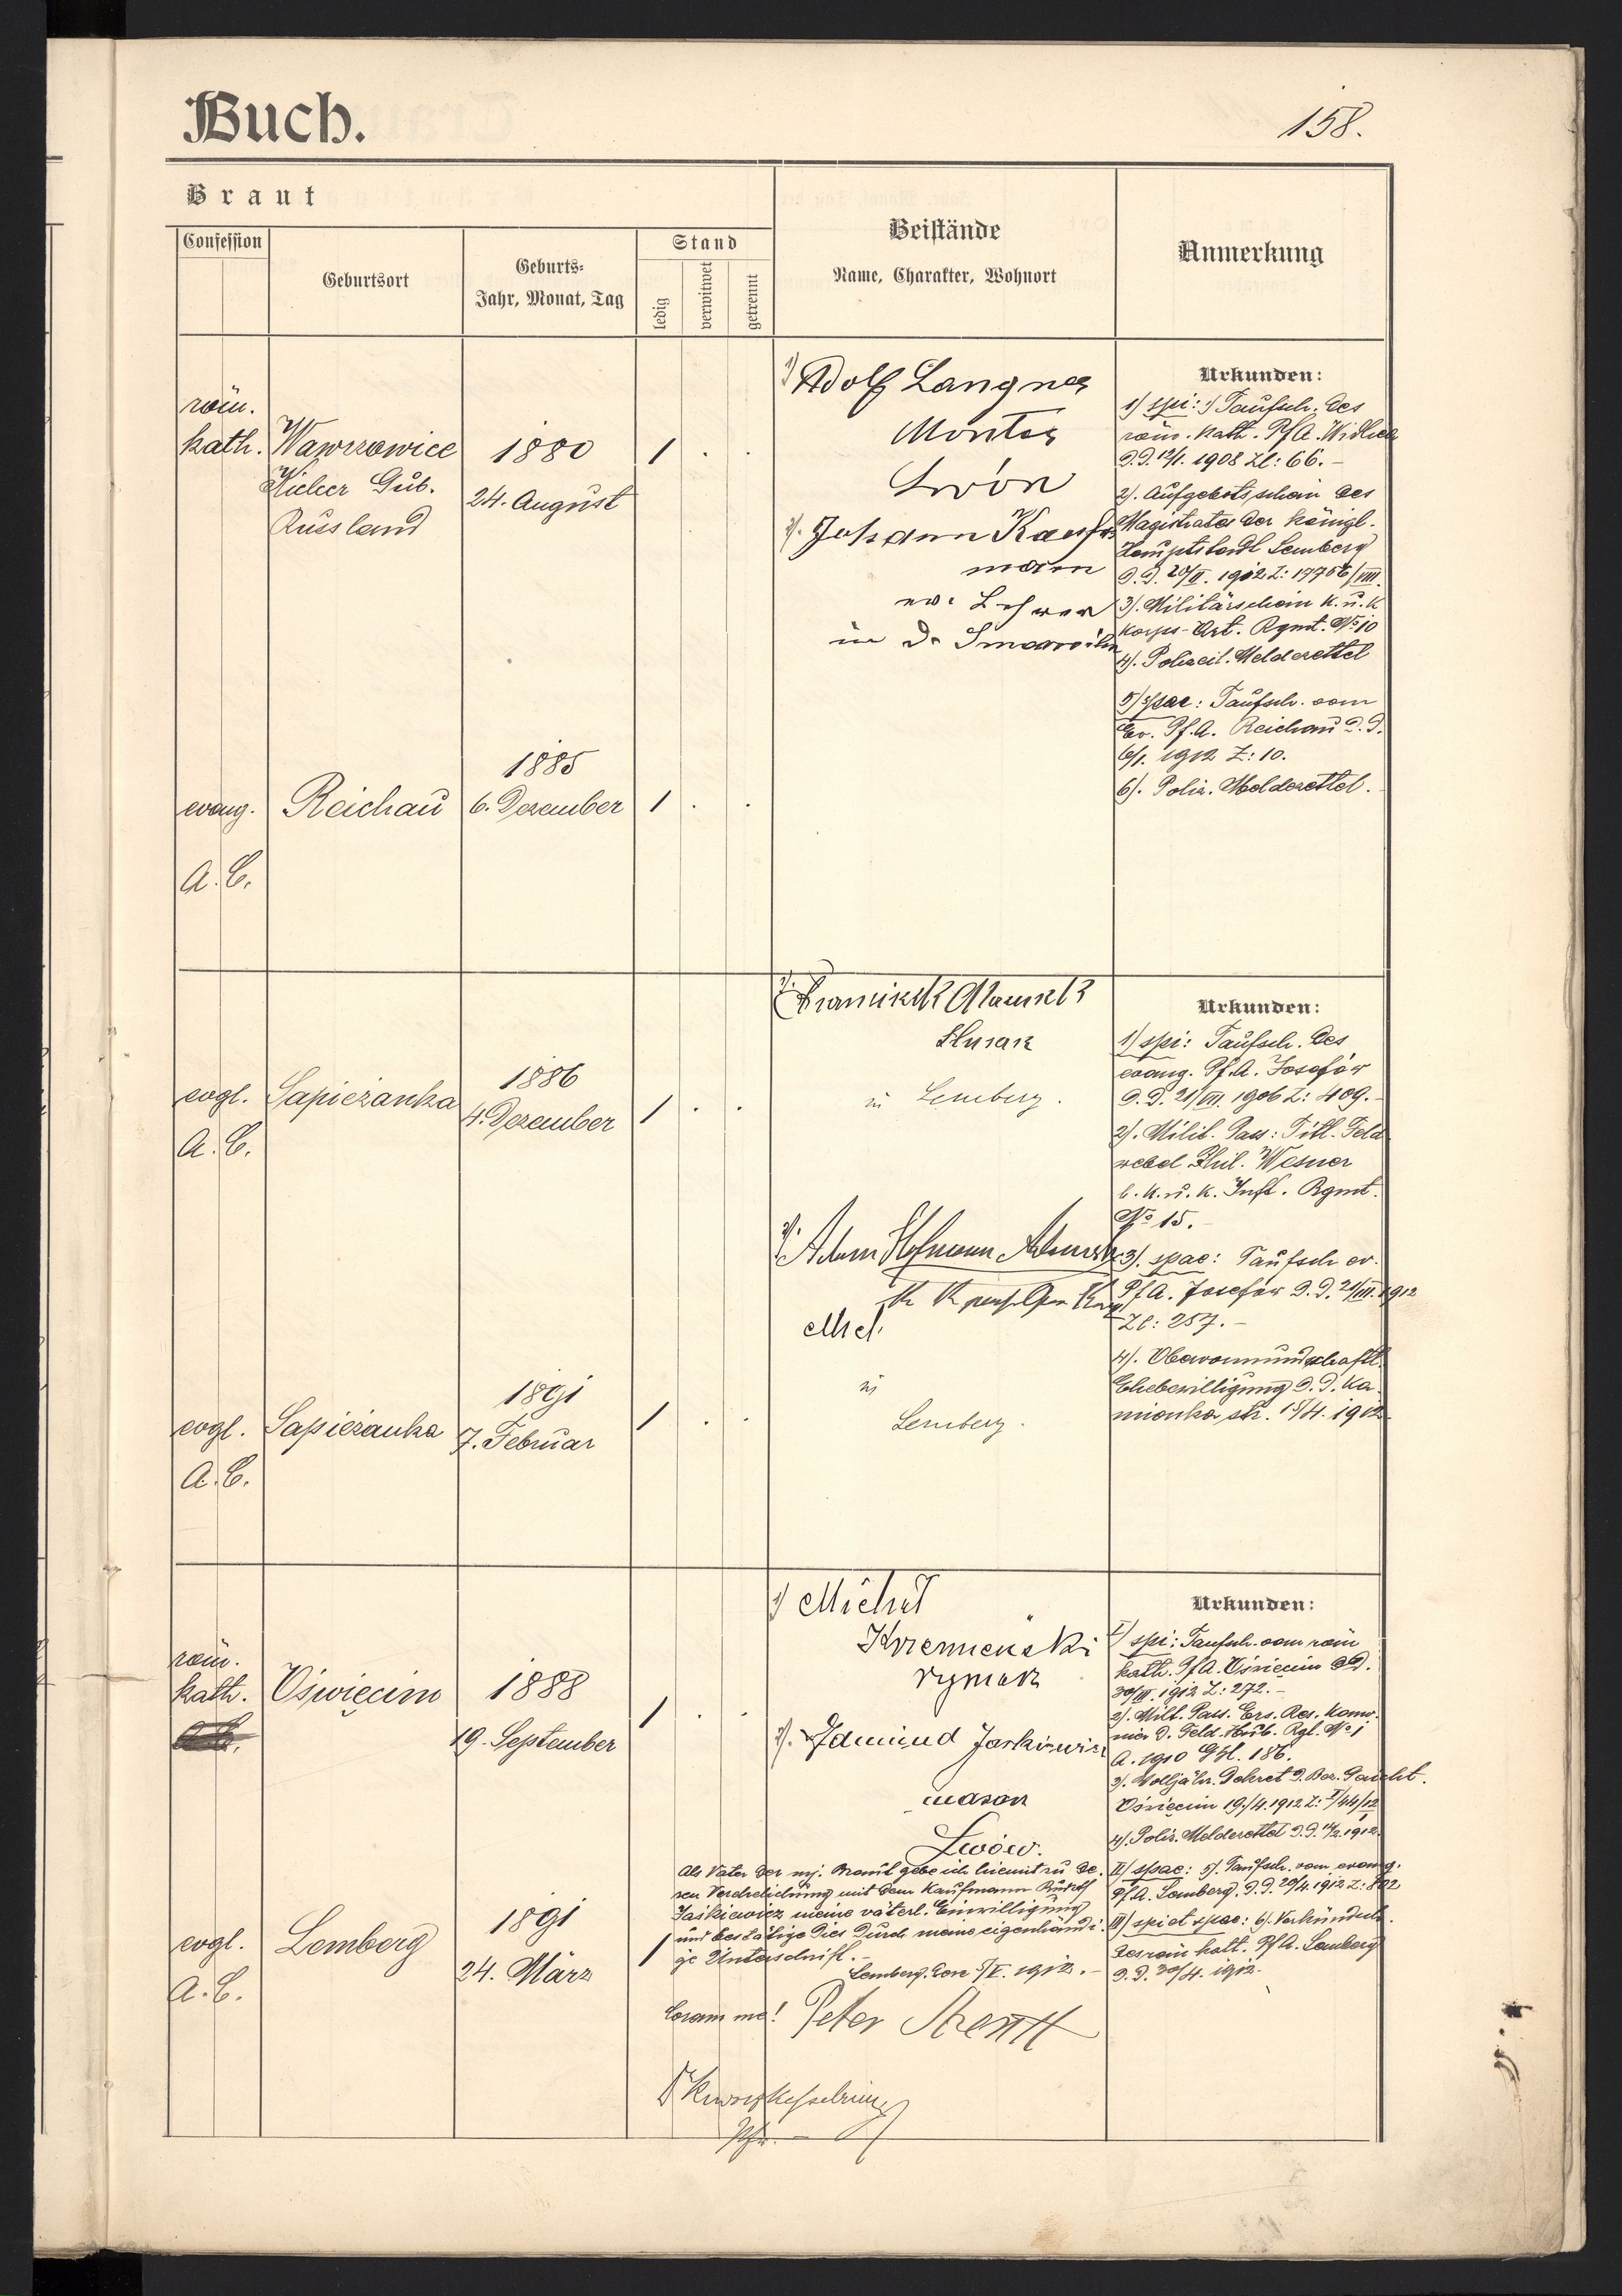 Buch.
158.
Braut
Confession
Geburtsort
Geburts-
Jahr, Monat, Tag
Stand
ledig
verwitwet
getrennt
Beistände
Name, Charakter, Wohnort
Anmerkung
röm.
kath.
Wawrzowice
Kielcer Gub.
Russland
1880
24. August
1 . .
1) Adolf Langner
Monter
Lwów
2). Johann Kauf-
mann
ev. Lehrer
in
Urkunden:
1) spi: 1) Taufsch. des
röm. kath. Pf.A.
d.d. 12/1. 1908 Zl: 66.-
2). Aufgebotsschein des
Magistrates der königl.
Hauptstadt Lemberg
d.d. 20/II. 1912 Z: 17756/VIII.
3). Militärschein k. u. k
Korps-Art. Rgmt. No 10
4). Polizeil. Meldezettel
5) spae: Taufsch. vom
Ev. Pf.A. Reichau d.d.
6/1. 1912 Z: 10.
6). Poliz. Meldezettel.
evang.
A.C.
Reichau
1885
6. Dezember
1 . .
evgl.
A.C.
Sapiezanka
1886
4. Dezember
1 . .
1). Franciszek
Ślusarz
in Lemberg.
2). Adam Hofmann
in
Lemberg.
Urkunden:
1) spi: Taufsch. des
evang. Pf.A. Josefów
d.d. 21/VII. 1906 Z: 409.-
2). Milit. Pass: Titl. Feld
webel Phil. Wesner
b. k. u. k. Inft. Rgmt.
No 15.-
3). spae: Taufsch ev.
Pf.A. Josefów d.d. 21/III. 1912
Zl: 257.-
4). Obervormundschaftl.
Ehebewilligung d.d. Ka-
mionka str. 15/4. 1912
evgl.
A.C.
Sapiezanka
1891
7. Februar
1 . .
röm.
kath.
Oświęcim
1888
19. September
1 . .
1) Michał
Krzemieński
rymarz
2). Edmund Jaśkiewicz
Lwów.
Urkunden:
I) spi: Taufsch. vom röm
kath. Pf.A. Oświęcim d.d.
30/III. 1912 Z: 272.-
2). Milt. Pass. Ers. Res. Kano-
nier d. Feld. Haub. Rgt. No 1
A. 1910 Gbl. 186.
3). Volljähr. Dekret d. Bez. Gericht.
Oświęcim 19./4. 1912 Z:
4). Poliz. Meldezettel d.d. 14/2. 1912.
II) spae: 5). Taufsch. vom evang.
Pf.A. Lemberg. d.d. 20/4. 1912 Z: 802
III) spi et spae: 6). Verkündsch.
des röm kath. Pf.A. Lemberg
d.d. 30/4. 1912.
evgl.
A.C.
Lemberg
1891
24. März
1
Als Vater der mj. Braut gebe ich hiemit zu de-
ren Verehelichung mit dem Kaufmann Rudolf
Jaśkiewicz meine väterl. Einwilligung
und bestätige dies durch meine eigenhändi-
ge Unterschrift.-
Lemberg, den 5/V. 1912.-
Coram me! Peter
Pfr.-